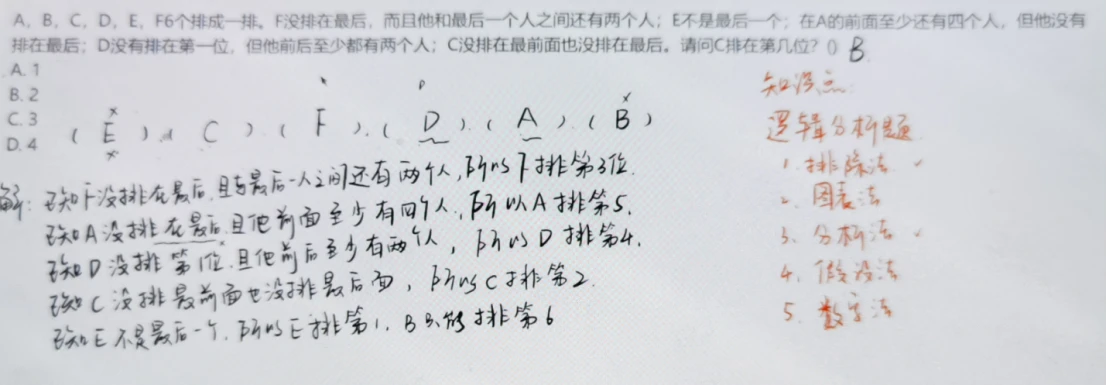 A，B，C，D，E，F6个排成一排。F没排在最后，而且他和最后一个人之间还有两个人；E不是最后一个；在A的前面至少还有四个人，但他没有
排在最后；D没有排在第一位，但他前后至少都有两个人；C没排在最前面也没排在最后。请问C排在第几位？() B
A. 1
B. 2
C. 3
D. 4
(E).(C).(F).(D).(A).(B)
解：已知F没排在最后，且与最后一人之间还有两个人，所以F排第3位.
已知A没排在最后，且他前面至少有四个人，所以A排第5.
已知D没排第1位，且他前后至少有两个人，所以D排第4.
已知C没排最前面也没排最后面，所以C排第2.
已知E不是最后一个，所以E排第1，B只能排第6
知识点:
逻辑分析题
1. 排除法 ✓
2. 图表法
3. 分析法 ✓
4. 假设法
5. 数字法